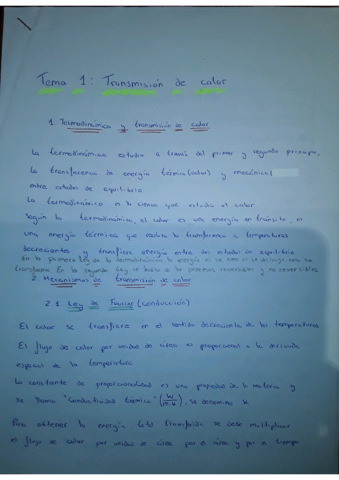 Tema 1: Transmisión de calor
1. Termodinámica y transmisión de calor
La termodinámica estudia a través del primer y segundo principio,
la transferencia de energía térmica (calor) y mecánica
entre estados de equilibrio
La termodinámica es la ciencia que estudia el calor
Según la termodinámica, el calor es una energía en tránsito, es
una energía térmica que realiza la transferencia a temperaturas
decrecientes y transfiere energía entre dos estados en equilibrio
En la primera Ley de la termodinámica la energía ni se crea ni se destruye, solo se
transforma. En la segunda Ley se habla de los procesos irreversibles y no reversibles
2. Mecanismos de transmisión de calor
2.1. Ley de Fourier (conducción)
El calor se transfiere en el sentido decreciente de las temperaturas
El flujo de calor por unidad de área es proporcional a la derivada
espacial de la temperatura
La constante de proporcionalidad es una propiedad de la materia y
se llama "Conductividad térmica" (W/m·k), se denomina k
Para obtener la energía total transferida se debe multiplicar
el flujo de calor por unidad de área por el área y por el tiempo